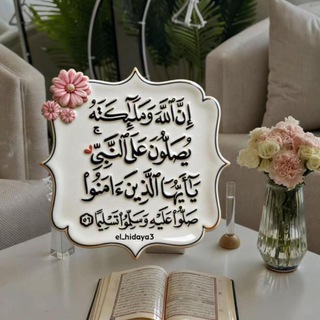 إِنَّ ٱللَّهَ وَمَلَٰٓئِكَتَهُۥ
يُصَلُّونَ عَلَى ٱلنَّبِيِّۚ
يَٰٓأَيُّهَا ٱلَّذِينَ ءَامَنُوا۟
صَلُّوا۟ عَلَيْهِ وَسَلِّمُوا۟ تَسْلِيمًا ٥٦
el_hidaya3